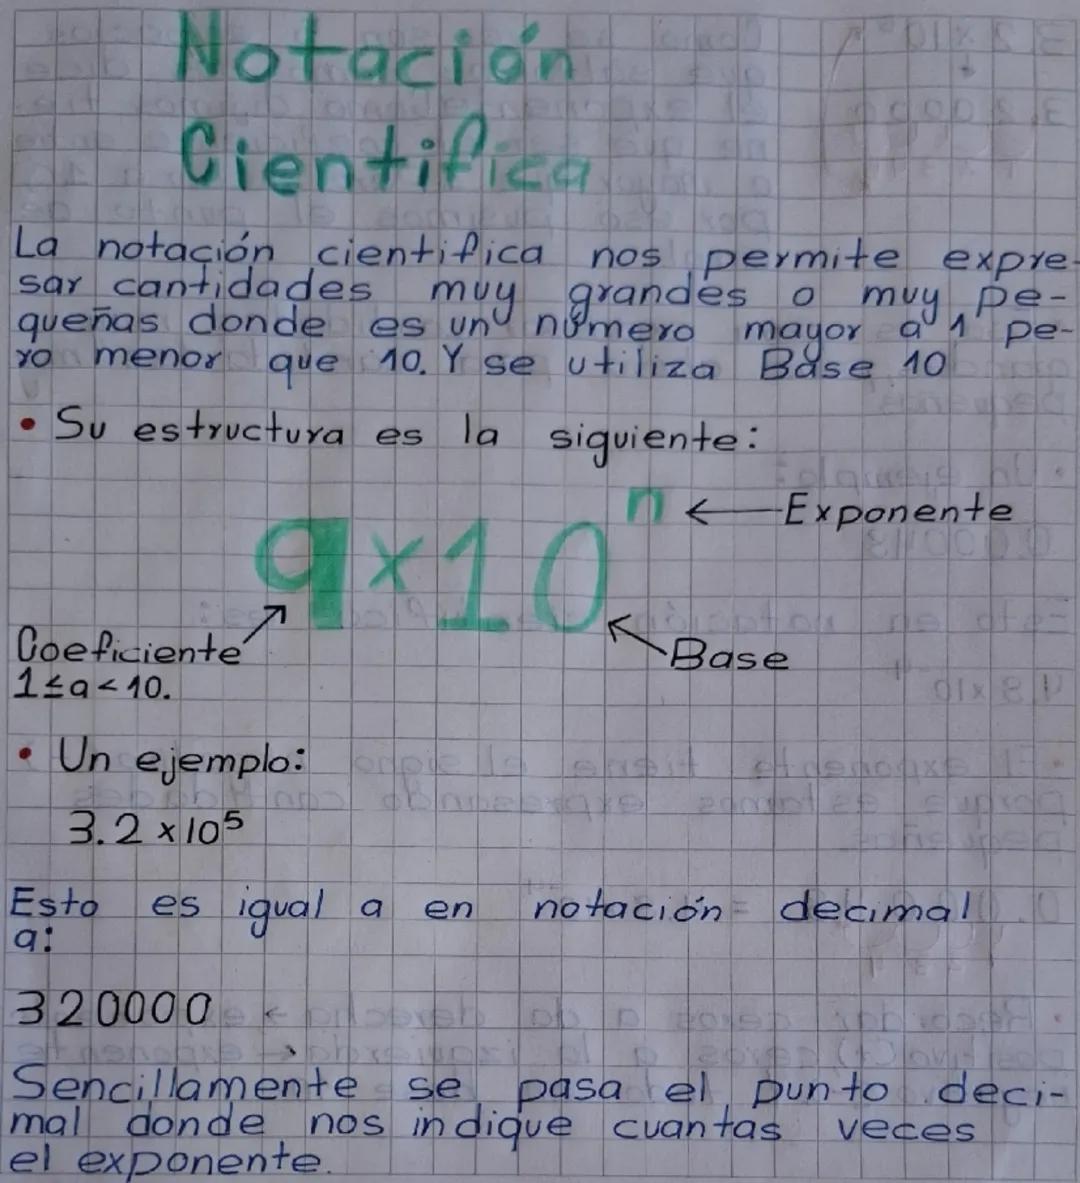 Notación
Cientifica
La notación cientifica nos permite expre-
sar cantidades muy grandes o muy pe-
queñas donde es un número mayor a 1 pe-
ro menor que 10. Y se utiliza Base 10
• Su estructura es la siguiente:
n ← Exponente
a × 10
Coeficiente
Base
1 ≤ a < 10.
• Un ejemplo:
3.2 × 10⁵
Esto es igual a en notación decimal
a:
320000
Sencillamente se pasa el punto deci-
mal donde nos indique cuantas veces
el exponente.